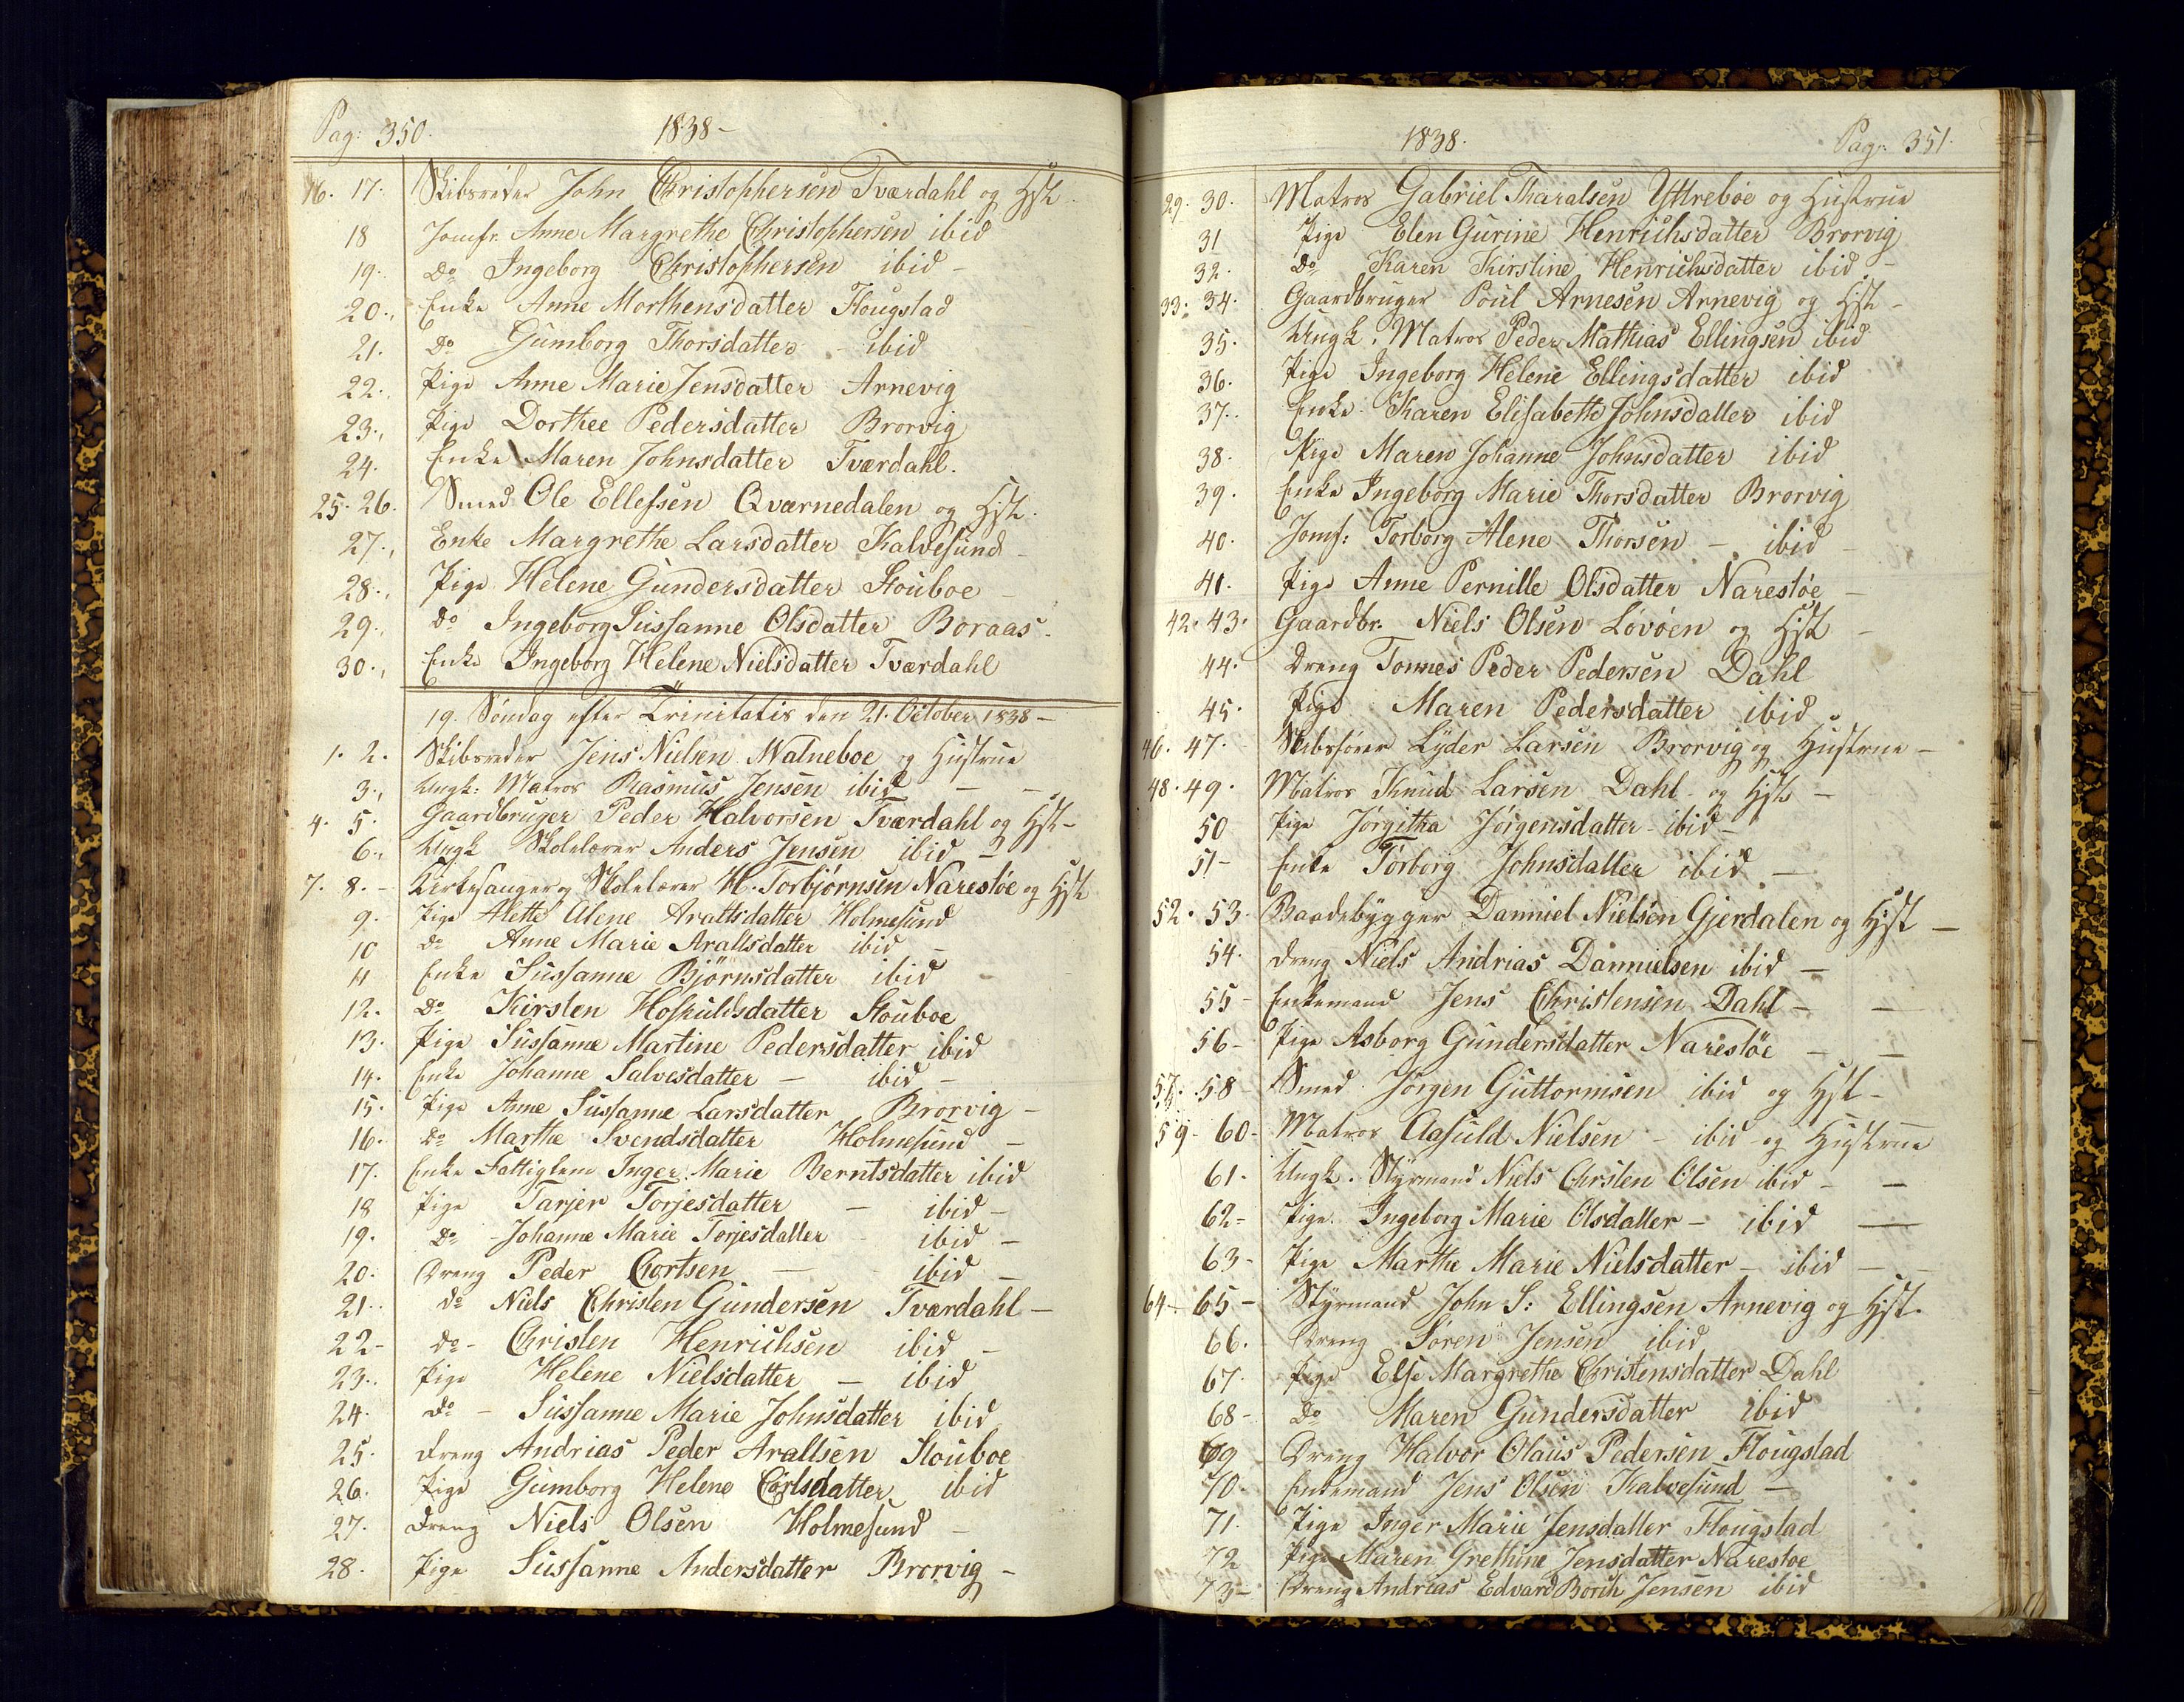 Pag: 350. 1838-
16. 17. Skibsreder John Christophersen Tværdahl og Hst.
18 Jomfr. Anne Margrethe Christophersen ibid
19. Do Ingeborg Christophersen ibid -
20. Enke Anne Morthensdatter Flougstad
21. Do Gumborg Thorsdatter - ibid
22. Pige Anne Marie Jensdatter Arnevig
23. Pige Dorthee Pedersdatter Brorvig
24. Enke Maren Johnsdatter Tværdahl.
25. 26. Smed Ole Ellefsen Qværnedalen og Hst.
27. Enke Margrethe Larsdatter Kalvesund -
28. Pige Helene Gundersdatter Stouboe -
29. Do Ingeborg Sussanne Olsdatter Boraas.
30. Enke Ingeborg Helene Nielsdatter Tværdahl
19. Søndag efter Trinitatis den 21. October 1838 -
1. 2. Skibsreder Jens Nielsen Walneboe og Hustrue
3. Ungk: Matros Rasmus Jensen ibid - -
4. 5. Gaardbruger Peder Halvorsen Tværdahl og Hst -
6. Ungk Skolelærer Anders Jensen ibid -
7. 8. - Kirkesanger og Skolelærer H. Torbjørnsen Narestøe og Hst
9. Pige Alette Alene Arattsdatter Holmesund
10 Do Anne Marie Araltsdatter ibid -
11 Enke Sussanne Bjørnsdatter ibid -
12. Do Kirsten Hoskuldsdatter Stouboe
13. Pige Sussanne Martine Pedersdatter ibid
14. Enke Johanne Salvesdatter - ibid -
15. Pige Anne Sussanne Larsdatter Brorvig -
16. Do Marthe Svendsdatter Holmesund -
17. Enke Fattiglem Inger Marie Berntsdatter ibid
18 Pige Tarjer Torjesdatter - ibid -
19. Do - Johanne Marie Torjesdatter ibid -
20. Dreng Peder Cortsen - ibid -
21. do Niels Christen Gundersen Tværdahl -
22 - do - Christen Henrichsen ibid -
23. Pige Helene Nielsdatter - ibid
24. do - Sussanne Marie Johnsdatter ibid
25. Dreng Andrias Peder Araltsen Stouboe
26. Pige Gumborg Helene Carlsdatter ibid
27. Dreng Niels Olsen Holmesund -
28. Pige Sussanne Andersdatter Brorvig -
1838. Pag: 351.
29. 30. Matros Gabriel Tharalsen Yttreboe og Hustrue
31 Pige Elen Gurine Henrichsdatter Brorvig
32. Do Karen Kirstine Henrichsdatter ibid -
33. 34. Gaardbruger Poul Arnesen Arnevig og Hst -
35. Ungk. Matros Peder Mathias Ellingsen ibid
36. Pige Ingeborg Helene Ellingsdatter ibid
37. Enke Karen Elisabeth Johnsdatter ibid
38. Pige Maren Johanne Johnsdatter ibid
39. Enke Ingeborg Marie Thorsdatter Brorvig
40. Jomf: Torborg Alene Thorsen - ibid -
41. Pige Anne Pernille Olsdatter Narestøe -
42. 43. Gaardbr. Niels Olsen Løvøen og Hst -
44. Dreng Tonnes Peder Pedersen Dahl
45. Pige Maren Pedersdatter ibid
46. 47. Skibsfører Lyder Larsen Brorvig og Hustrue -
48. 49. Matros Knud Larsen Dahl og Hst -
50 Pige Jørgitha Jørgensdatter - ibid -
51 - Enke Torborg Johnsdatter ibid -
52. 53. Baadebygger Danniel Nielsen Gjerdalen og Hst -
54. Dreng Niels Andrias Dannielsen ibid -
55 - Enkemand Jens Christensen Dahl - -
56 - Pige Asborg Gundersdatter Narestøe - -
57. 58 Smed Jørgen Guttormsen ibid og Hst -
59 - 60 - Matros Aasuld Nielsen - ibid og Hustrue
61. Ungk. Styrmand Niels Chrsten Olsen ibid - -
62 - Pige. Ingeborg Marie Olsdatter - ibid -
63 - Pige Marthe Marie Nielsdatter - ibid - -
64 - 65 - Styrmand John S: Ellingsen Arnevig og Hst.
66. Dreng Søren Jensen ibid
67. Pige Else Margrethe Christensdatter Dahl
68 - Do Maren Gundersdatter ibid
69 Dreng Halvor Olaus Pedersen Flougstad
70. Enkemand Jens Olsen Kalvesund -
71. Pige Inger Marie Jensdatter Flougstad
72 Pige Maren Grethine Jensdatter Narestoe
73 - Dreng Andrias Edvard Borch Jensen ibid